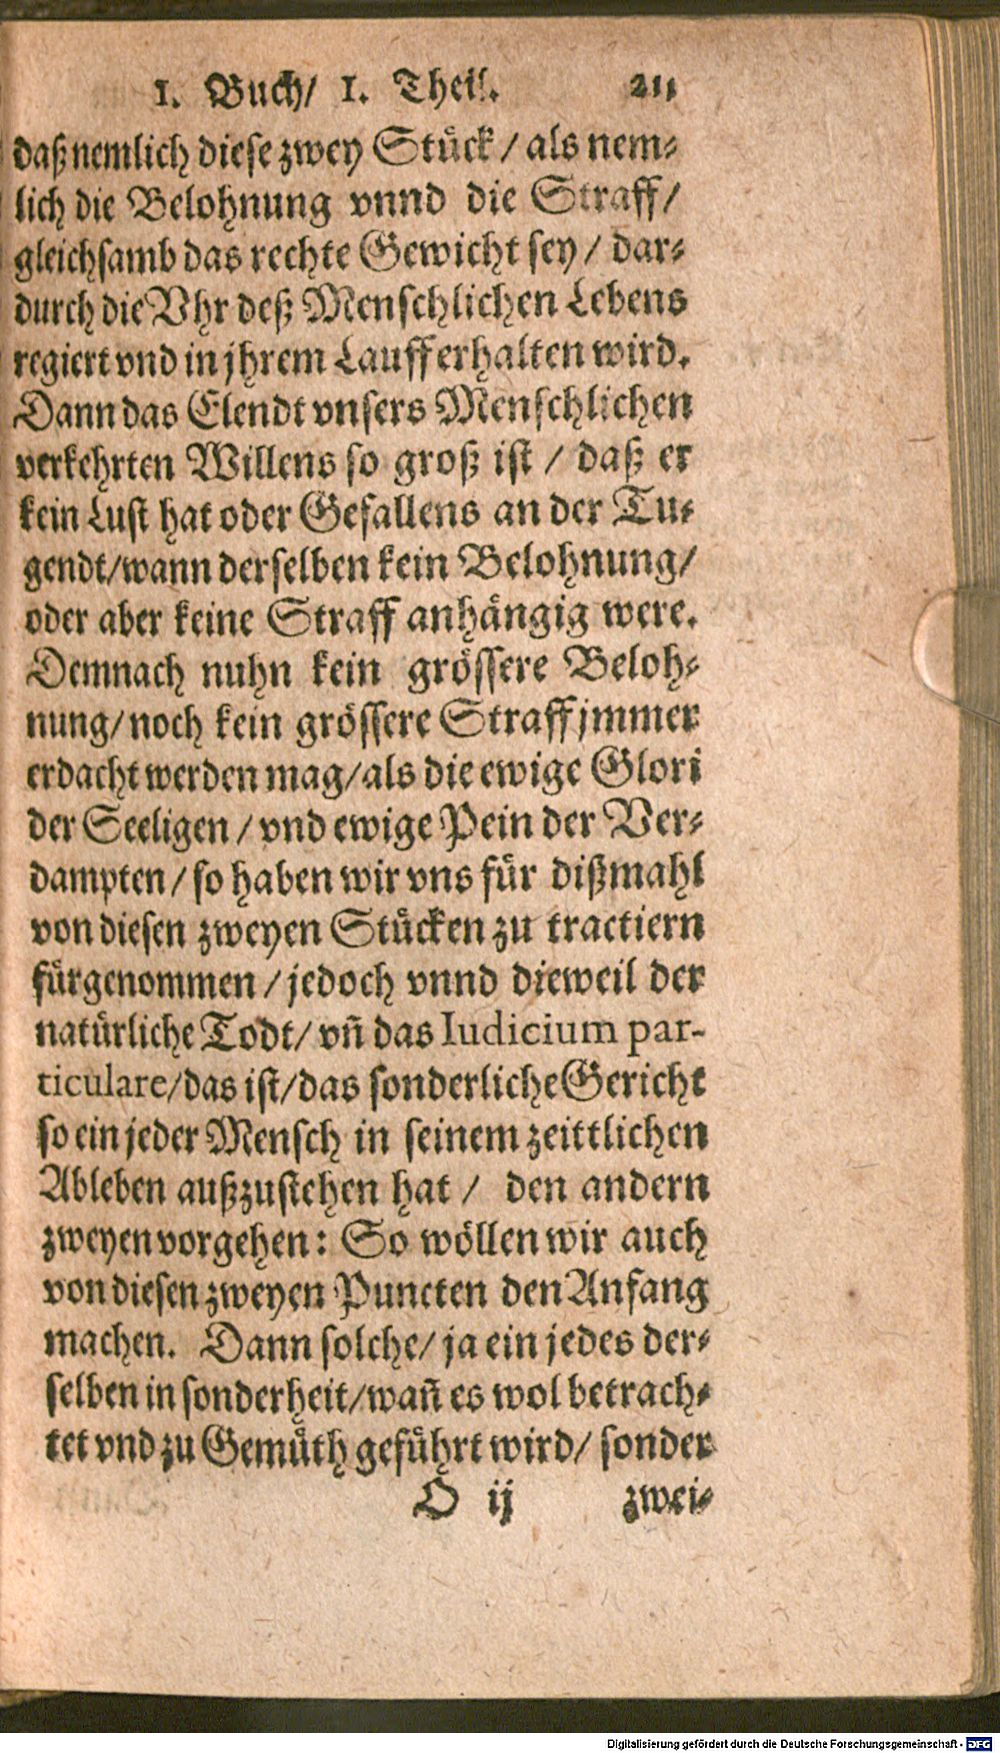 1. Buch/ 1. Theil. 211
daß nemlich diese zwey Stück / als nem⸗
lich die Belohnung vnnd die Straff/
gleichsamb das rechte Gewicht sey / dar⸗
durch die Vhr deß Menschlichen Lebens
regiert vnd in jhrem Lauff erhalten wird.
Dann das Elendt vnsers Menschlichen
verkehrten Willens so groß ist / daß er
kein Lust hat oder Gefallens an der Tu⸗
gendt/wann derselben kein Belohnung/
oder aber keine Straff anhängig were.
Demnach nuhn kein grössere Beloh⸗
nung/noch kein grössere Straff jmmer
erdacht werden mag/als die ewige Glori
der Seeligen / vnd ewige Pein der Ver⸗
dampten / so haben wir vns für dißmahl
von diesen zweyen Stücken zu tractiern
fürgenommen / jedoch vnnd dieweil der
natürliche Todt/ vñ das Iudicium par-
ticulare/das ist/das sonderliche Gericht
so ein jeder Mensch in seinem zeittlichen
Ableben außzustehen hat / den andern
zweyen vorgehen: So wöllen wir auch
von diesen zweyen Puncten den Anfang
machen. Dann solche/ ja ein jedes der⸗
selben in sonderheit/wañ es wol betrach⸗
tet vnd zu Gemüth geführt wird/ sonder
O ij zwei⸗
Digitalisierung gefördert durch die Deutsche Forschungsgemeinschaft - DFG